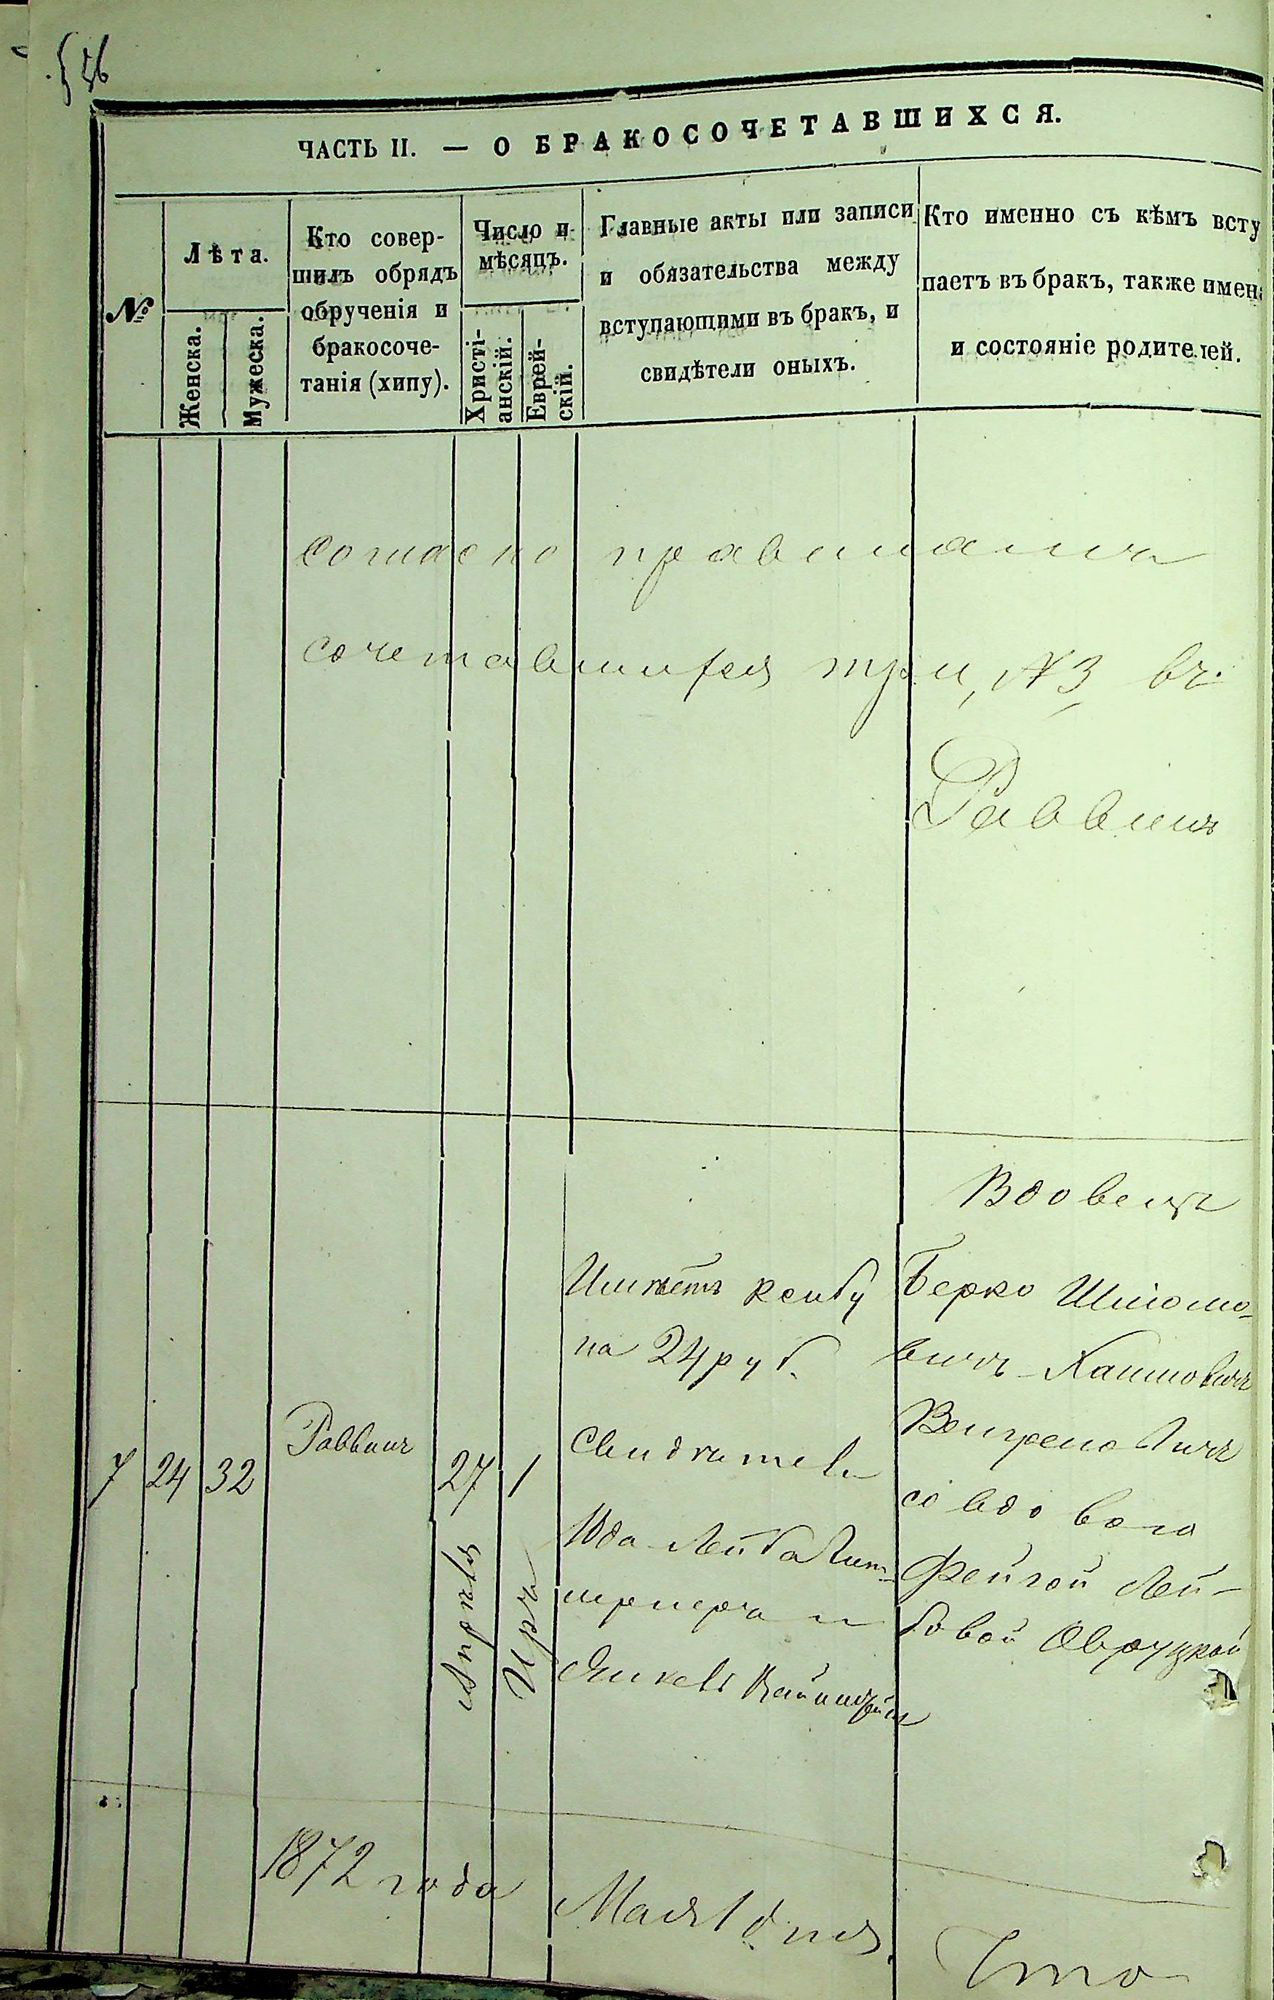 ЧАСТЬ II. — О БРАКОСОЧЕТАВШИХСЯ.
№
Лѣта.
Женска.
Мужеска.
Кто совер-
шилъ обрядъ
обрученія и
бракосоче-
танія (хипу).
Число и
мѣсяцъ.
Христі-
анскій.
Еврей-
скій.
Главные акты или записи
и обязательства между
вступающими въ бракъ, и
свидѣтели оныхъ.
Кто именно съ кѣмъ всту
паетъ въ бракъ, также имен
и состояніе родителей.
согласно правиламъ
сочетавшихся три, №3, въ
Раввинъ
7
24
32
Раввинъ
27
Апрѣля
1
Иръ
Имѣетъ кетбу
на 24 руб.
Свидѣтели
Юда Лейба
и
Янкель
Вдовецъ
Берко Шліомо-
вичъ Хаимовичъ
со вдовою
Фейгой Лей-
бовой Овруцкой
1872 года Мая 1 дня. Что